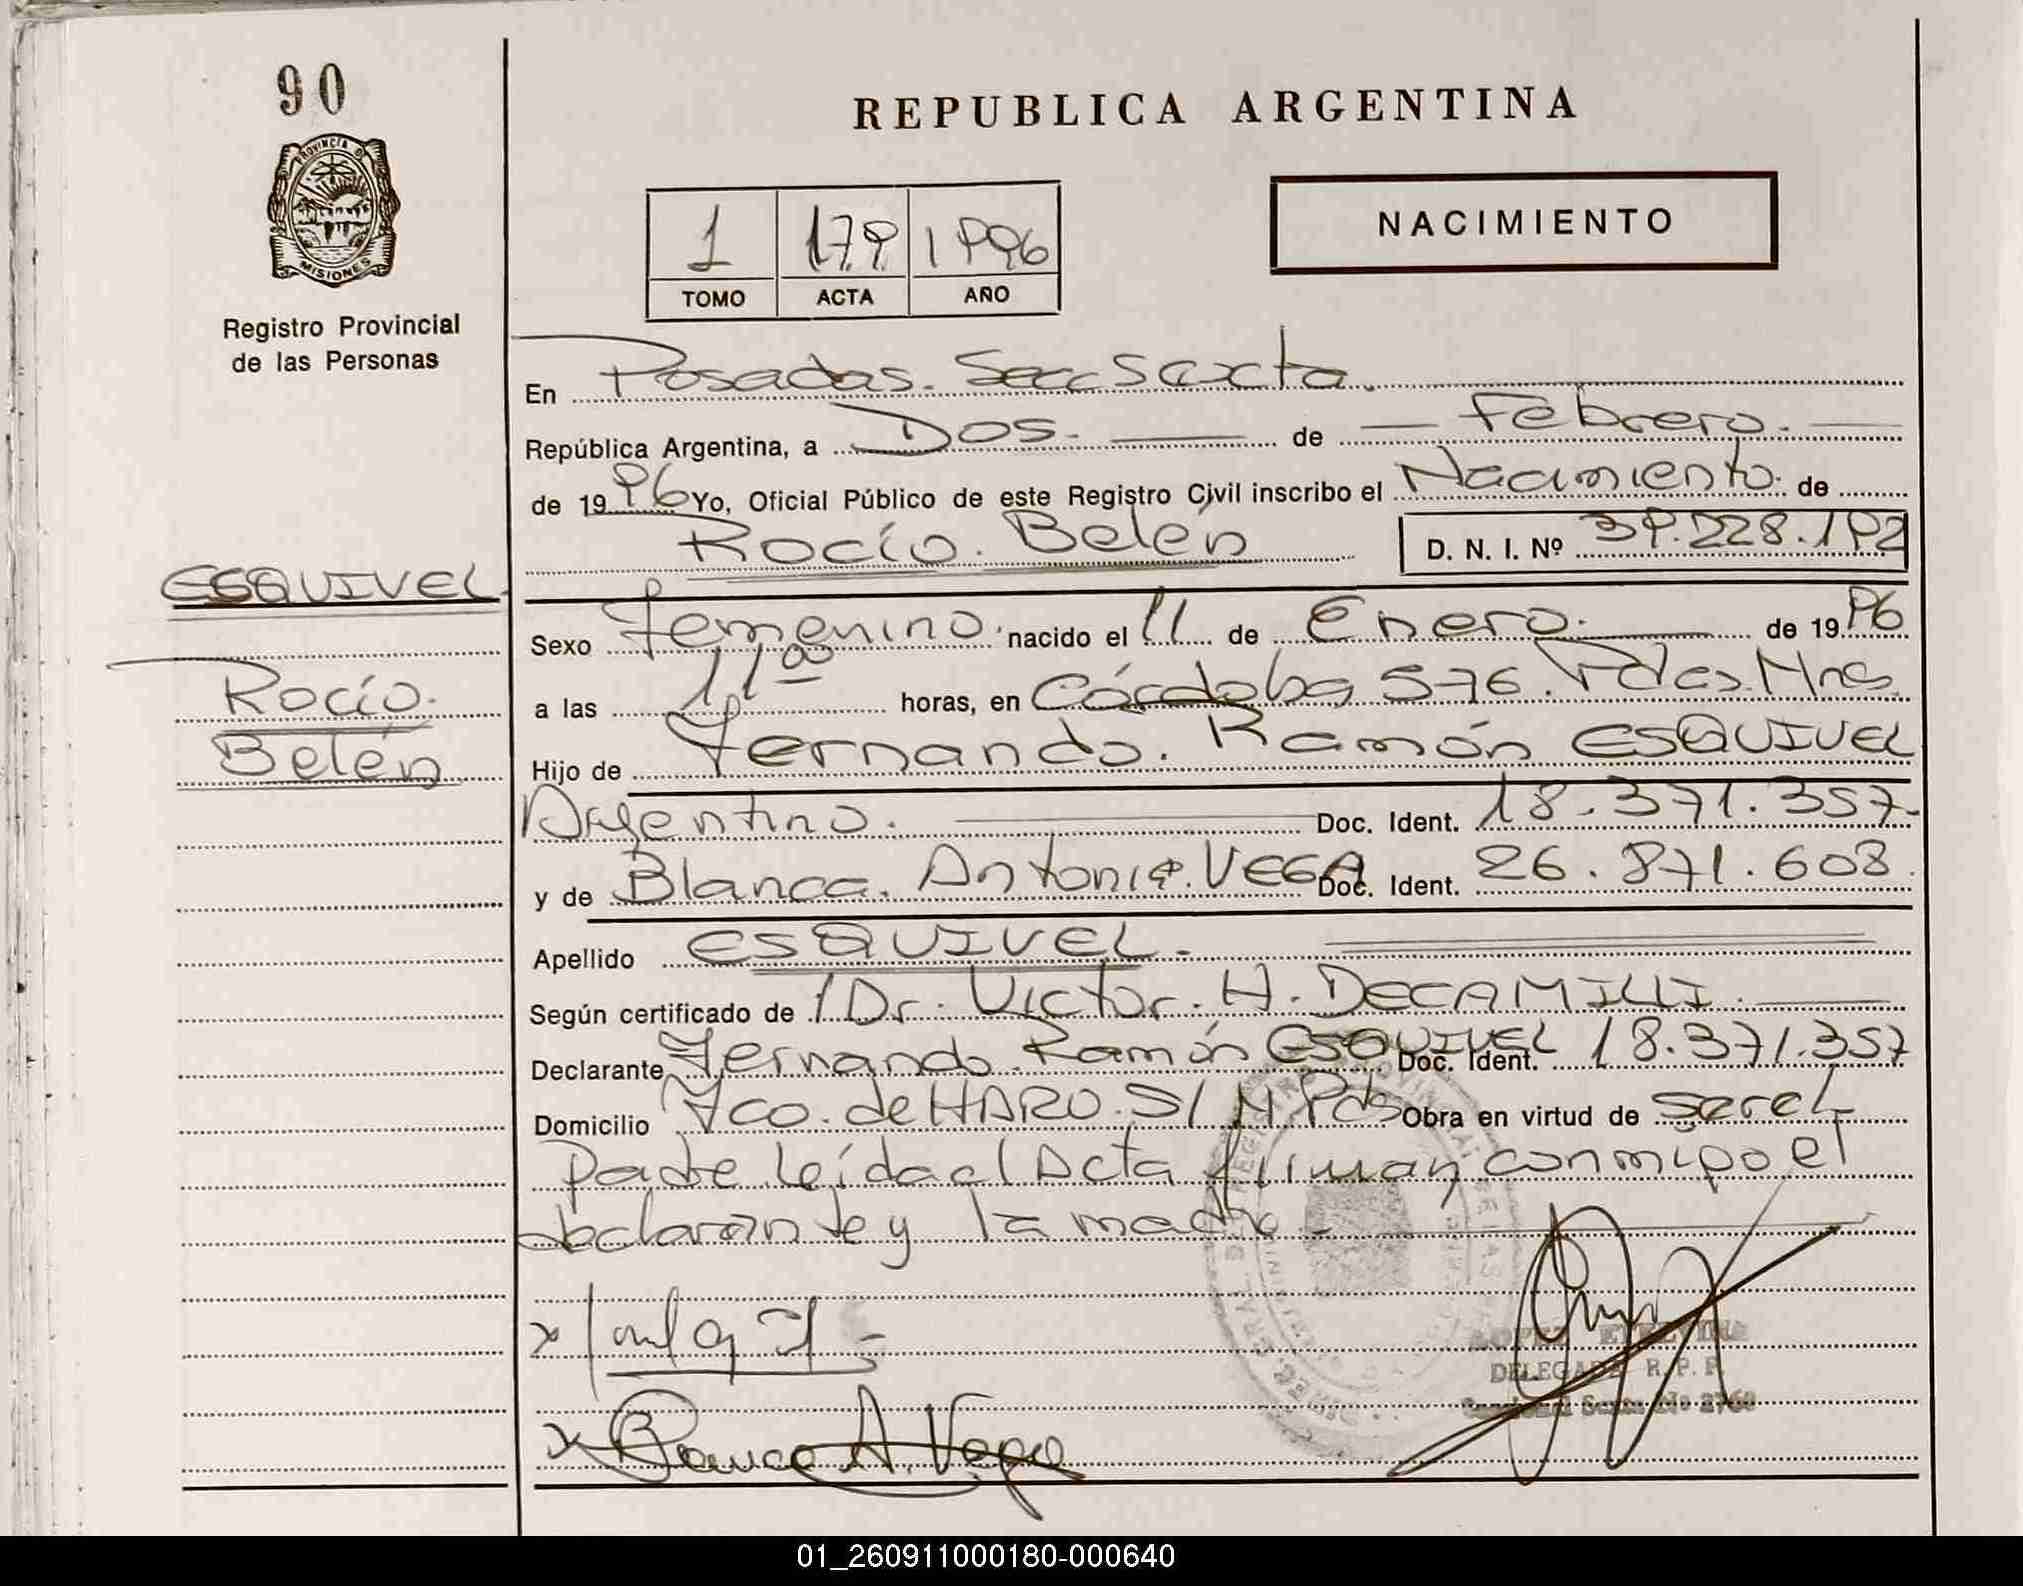 90
PROVINCIA DE
MISIONES
Registro Provincial
de las Personas
REPUBLICA ARGENTINA
1 179 1996
TOMO ACTA AÑO
NACIMIENTO
En Posadas. Secc Sexta.
República Argentina, a Dos. de Febrero.
de 1996 Yo, Oficial Público de este Registro Civil inscribo el Nacimiento. de
Rocío. Belén D. N. I. Nº 39.228.192
ESQUIVEL
Rocío.
Belén
Sexo Femenino. nacido el 11 de Enero. de 1996
a las 11 00 horas, en Córdoba 576. Pdas. Mnes.
Hijo de Fernando. Ramón ESQUIVEL
Argentino. Doc. Ident. 18.371.357.
y de Blanca. Antonia. VEGA Doc. Ident. 26.871.608.
Apellido ESQUIVEL.
Según certificado de Dr. Victor. H. DECAMILLI.
Declarante Fernando. Ramón ESQUIVEL Doc. Ident. 18.371.357
Domicilio Fco. de HARO. S/N Pds Obra en virtud de ser el
padre leída el Acta firman conmigo el
declarante y la madre.
Blanca A. Vega
DELEGADA R. P. P.
Seccional Sexta Nº 2760
01_260911000180-000640